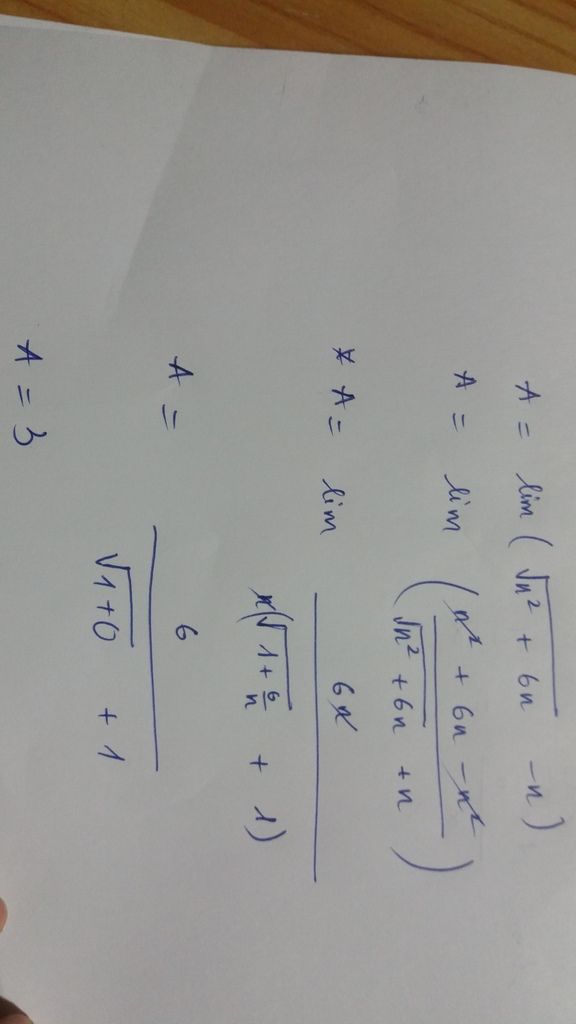 A = lim ( √(n² + 6n) - n )
A = lim ( (n² + 6n - n²) / (√(n² + 6n) + n) )
* A = lim 6n / n(√(1 + 6/n) + 1)
A = 6 / (√(1+0) + 1)
A = 3